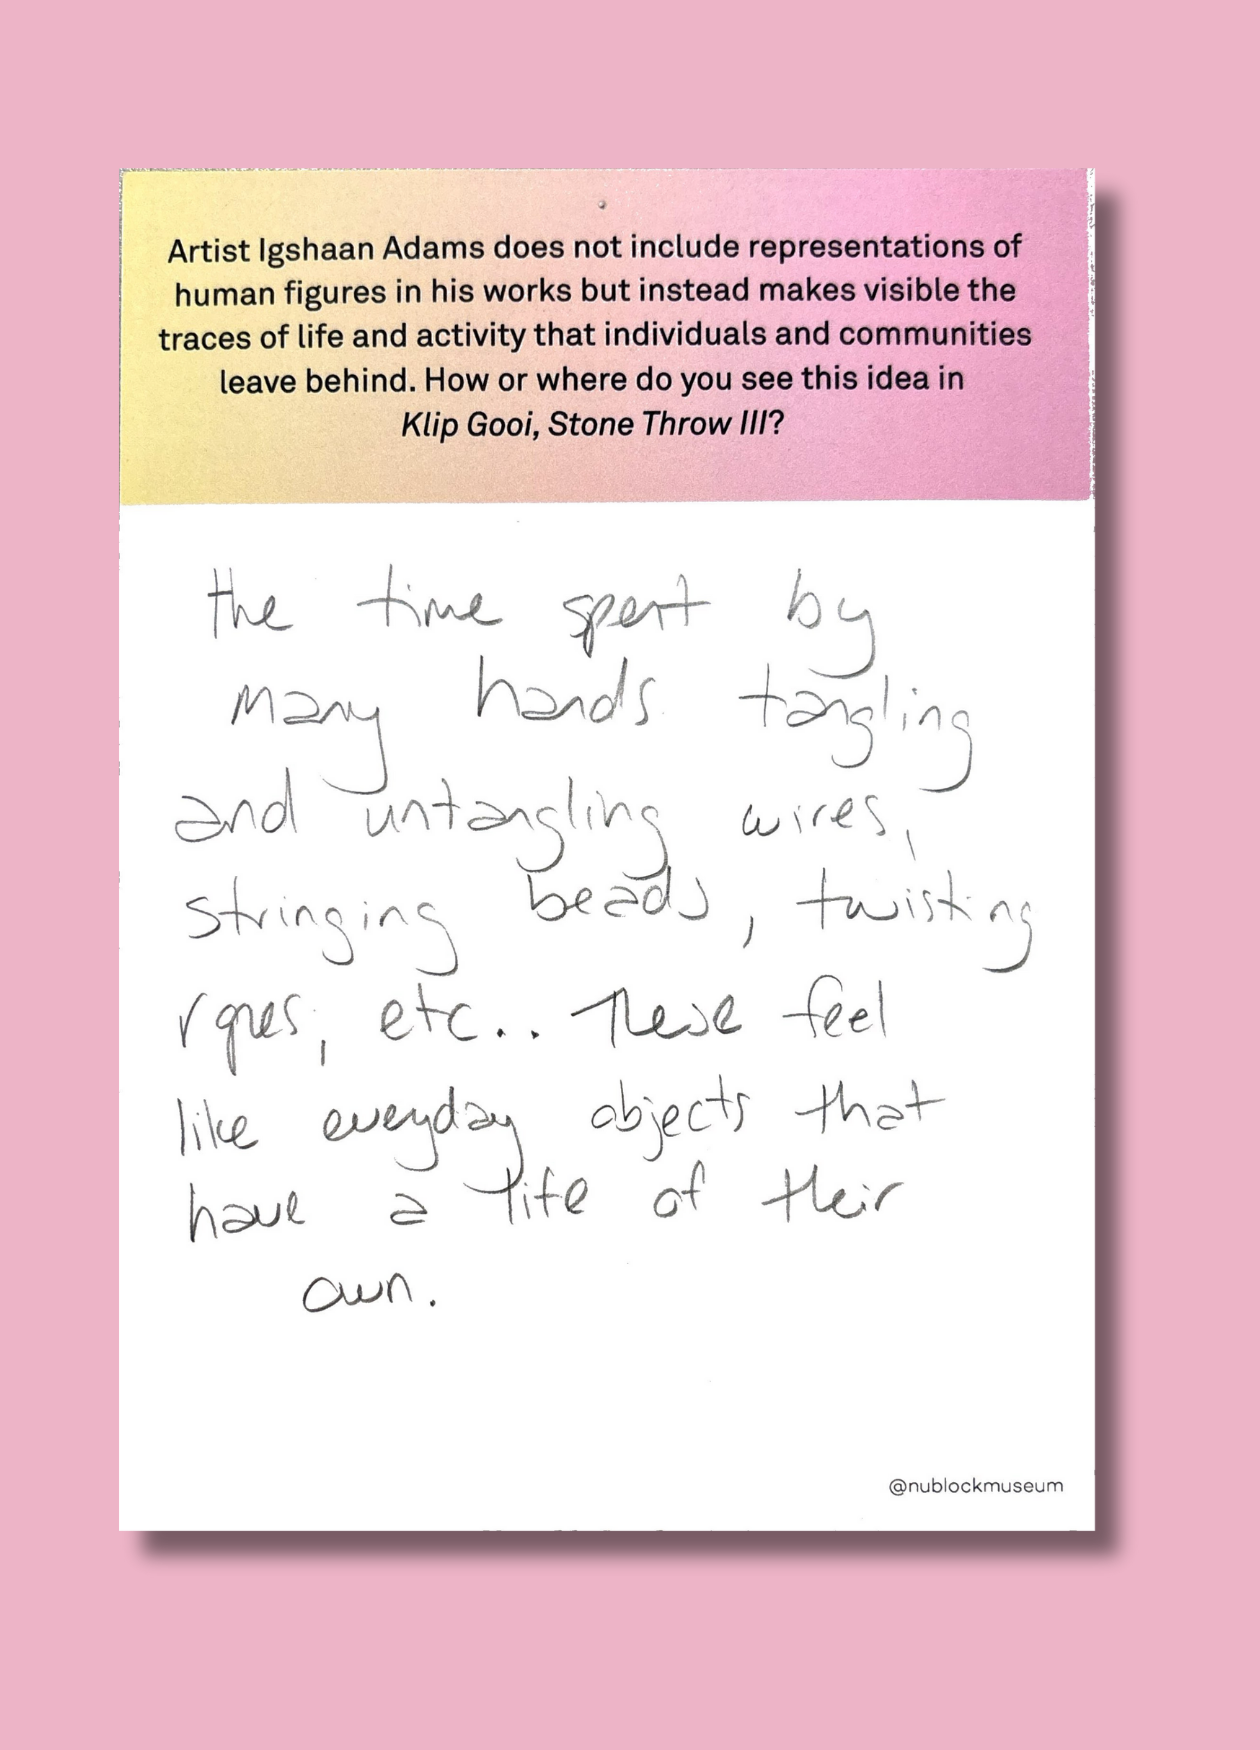 Artist Igshaan Adams does not include representations of
human figures in his works but instead makes visible the
traces of life and activity that individuals and communities
leave behind. How or where do you see this idea in
Klip Gooi, Stone Throw III?
the time spent by
many hands tangling
and untangling wires,
stringing beads, twisting
ropes, etc.. These feel
like everyday objects that
have a life of their
own.
@nublockmuseum